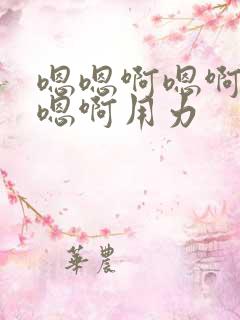 嗯嗯啊嗯啊
嗯啊用力
華農